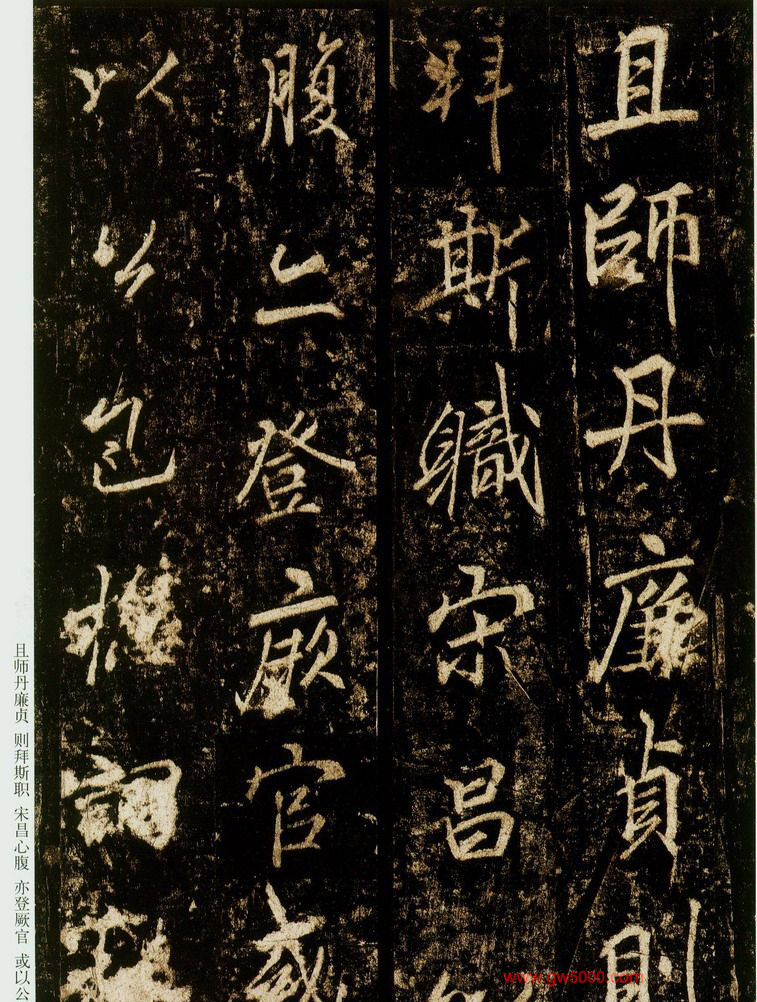 且師丹廉貞則
拜斯職宋昌心
腹亦登厥官或
以公包詞
且师丹廉贞 则拜斯职 宋昌心腹 亦登厥官 或以公
www.gw5000.com